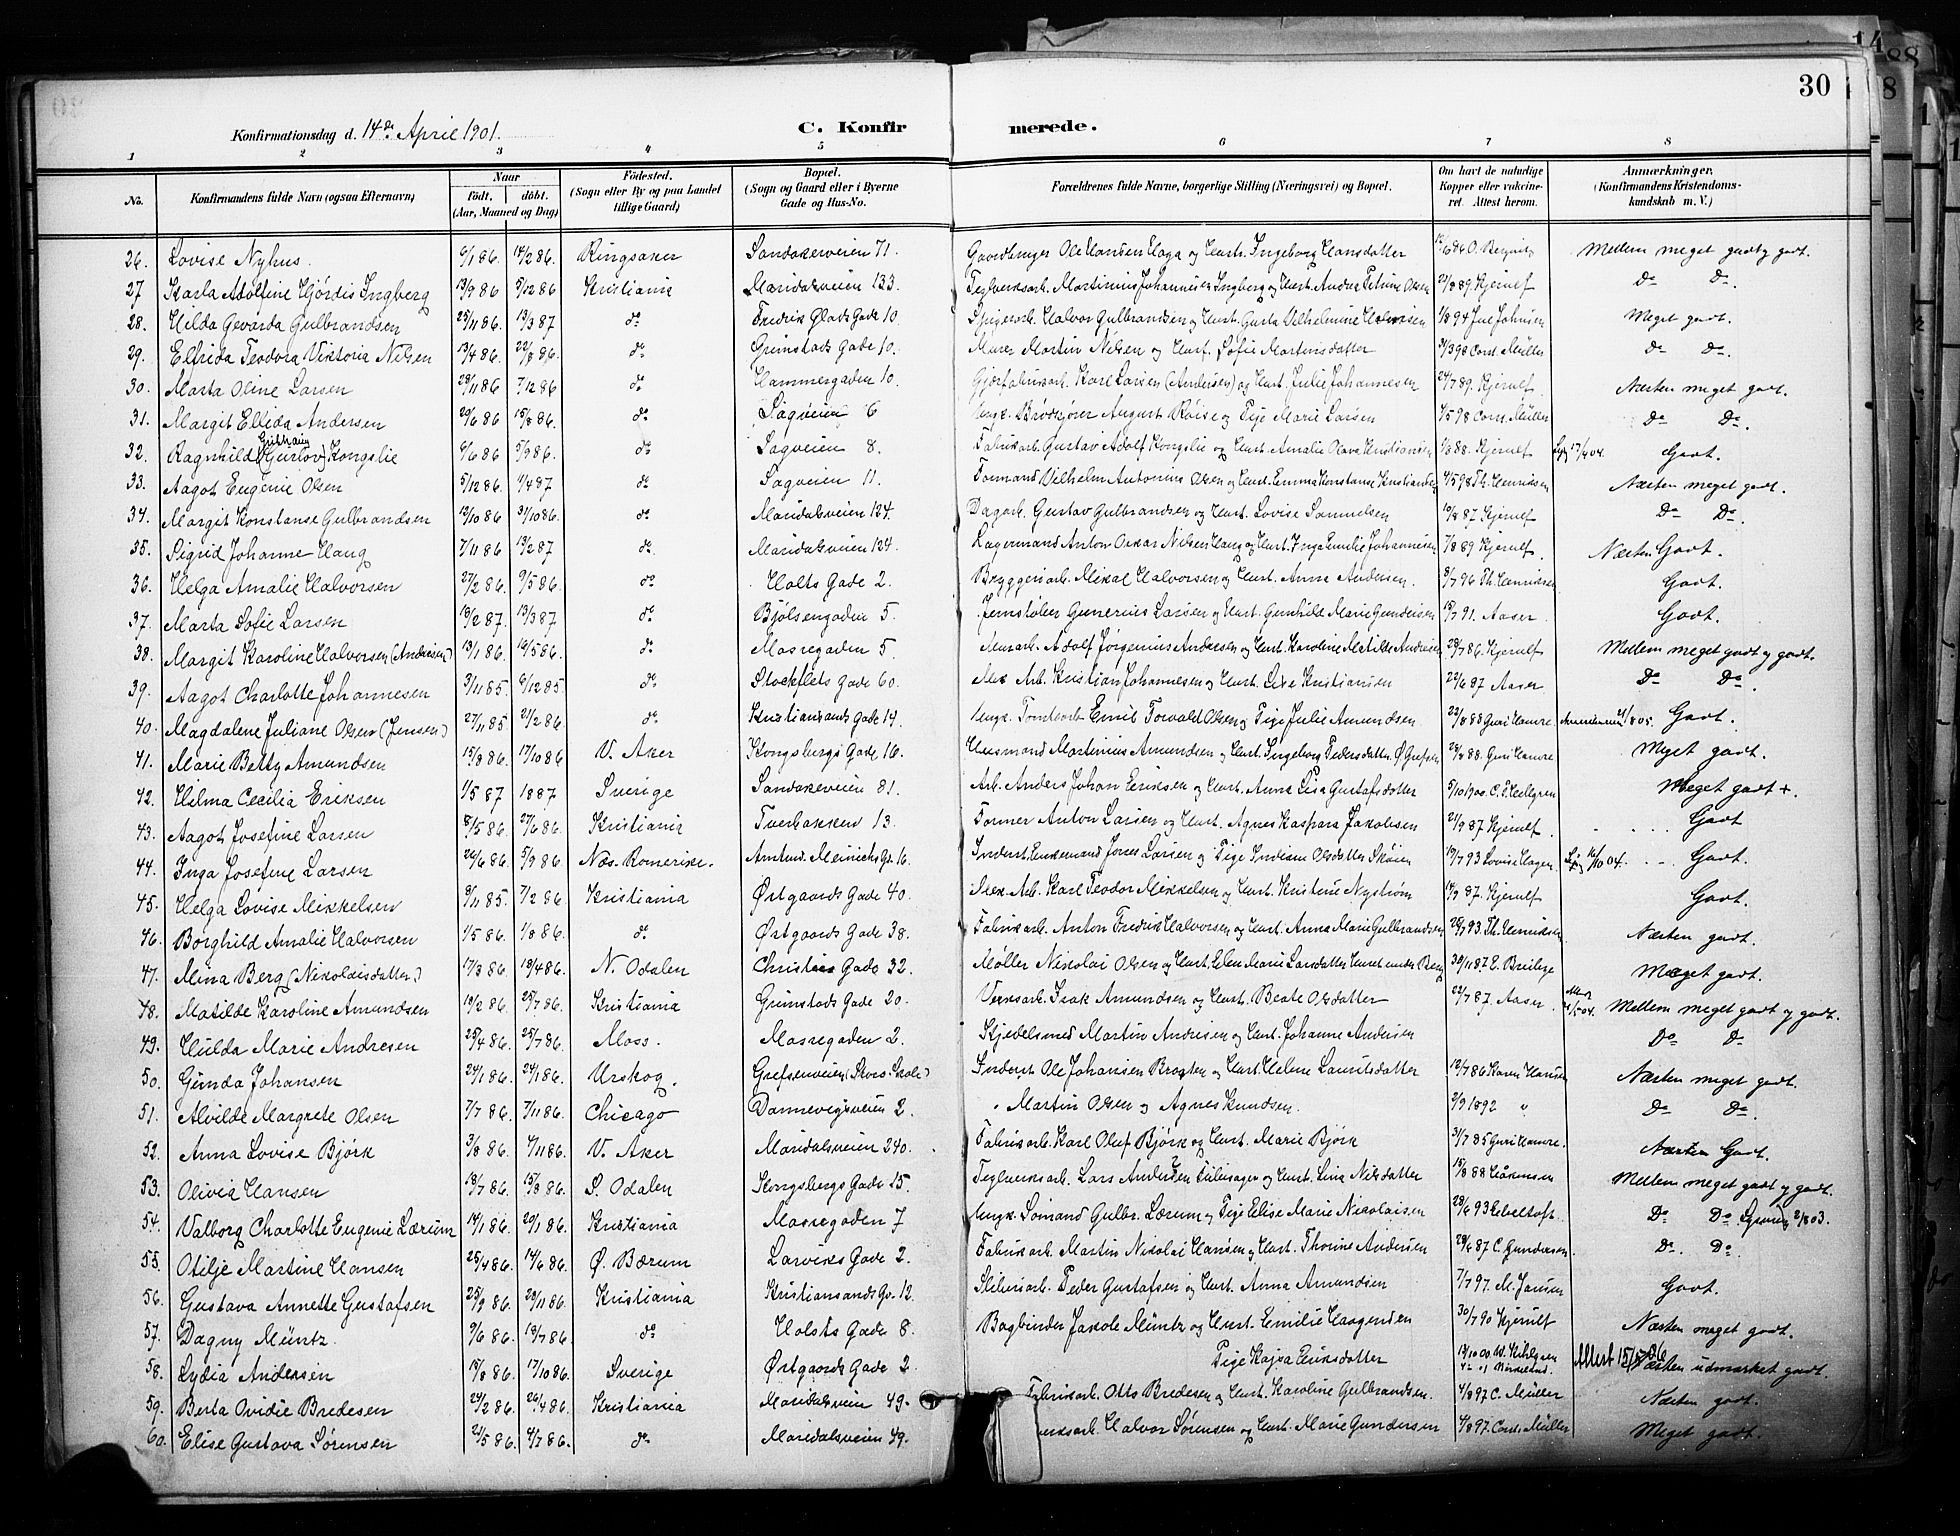 30
Konfirmationsdag d. 14de April 1901. C. Konfirmerede.
1 2 3 4 5 6 7 8
No. Konfirmandens fulde Navn (ogsaa Efternavn) Naar født. døbt. (Aar, Maaned og Dag) Fødested. (Sogn eller By og paa Landet tillige Gaard) Bopæl. (Sogn og Gaard eller i Byerne Gade og Hus-No. Forældrenes fulde Navne, borgerlige Stilling (Næringsvei) og Bopæl. Om havt de naturlige Kopper eller vaccineret. Attest herom. Anmærkninger. (Konfirmandens Kristendomskundskab m. V.)
26. Lovise Nyhus. 6/1 86. 14/2 86. Ringsaker Sandakerveien 71. Ole Hansen Haga og Hust. Ingeborg Hansdatter Mellem meget godt og godt.
27 Karla Adolfine Hjørdis Ingberg 13/9 86 5/12 86 Kristiania Maridalsveien 133. Teglverksarb. Martinius Johannesen Ingberg og Hust. Petrine Olsen 21/8 89. Kjerulf Do Do.
28. Hilda Gevarda Gulbrandsen 25/11 86. 13/3 87 do Fredrik Glads Gade 10. Spigerarb. Halvor Gulbrandsen og Hust. Vilhelmine 1/8 94 Johnsen Meget godt.
29. Elfrida Teodora Viktoria Nilsen 13/4 86. 22/8 86. do Grimstads Gade 10. Murer Martin Nilsen og Hust. Sofie Martinsdatter Müller Do Do.
30. Marta Oline Larsen 28/11 86 7/12 86 do Hammergaden 10. Karl Larsen (Andersen) og Hust. Julie Johannesen 24/7 89. Kjerulf Næsten meget godt.
31. Margit Ellida Andersen 20/6 86 15/8 86. do Sagveien 6 Ungk. Brødkjører August Røise og Pige Marie Larsen Müller Do Do.
32. Ragnhild (Gustav) Kongslie 6/6 86 5/9 86. do Sagveien 8. Fabrikarb. Gustav Adolf Kongslie og Hust. Amalie Olava Kristiansen 88. Kjerulf 17/4 04. Godt.
33. Aagot Eugenie Olsen 5/12 86 1/4 87 do Sagveien 11. Formand Vilhelm Antonius Olsen og Hust. Emma Konstanse 4/5 98 Th. Henriksen Næsten meget godt.
34. Margit Konstanse Gulbrandsen 12/10 86 31/10 86. do Maridalsveien 124. Dagarb. Gustav Gulbrandsen og Hust. Lovise Samuelsen 10/8 87 Kjerulf Do Do.
35. Sigrid Johanne Haug 7/11 86 13/2 87 do Maridalsveien 124. Lagermand Anton Oskar Nilsen Haug og Hust. Inga Emilie Johannesen 7/8 89 Kjerulf. Næsten Godt.
36. Helga Amalie Halvorsen 27/2 86. 9/5 86. do Holts Gade 2. Bryggeriarb. Mikal Halvorsen og Hust. Anna Andersen. 8/7 96 Th. Henriksen Godt.
37. Marta Sofie Larsen 19/2 87. 13/3 87 do Bjølsengaden 5. Jernstøber Gunerius Larsen og Hust. Gunhilde Marie Gundersen 91. Aaser Godt.
38. Margit Karoline Halvorsen (Andersen) 13/1 86. 16/5 86. do Mosregaden 5 Murarb. Adolf Jørgenius Andersen og Hust. Karoline Matilde Andersen 28/7 86. Kjerulf Mellem meget godt og godt.
39. Aagot Charlotte Johannesen 3/11 85. 6/12 85. do Stockflets Gade 60. Mek. Arb. Kristian Johannesen og Hust. Lise Kristiansen 22/6 87 Aaser Do Do.
40. Magdalene Juliane Olsen (Jensen) 27/11 85 21/2 86 do Kristiansands Gade 14. Ungk. Tomtearb. Emil Torvald Olsen og Pige Julie Amundsen 22/8 88 Guri Hamre Godt.
41. Marie Betty Amundsen 15/8 86. 17/10 86 V. Aker Kongsbergs Gade 16. Husmand Martinius Amundsen og Hust. Ingeborg Pedersdatter Ø. Grefsen 88. Guri Hamre Meget godt.
42. Hilma Cecilia Eriksen 1/5 87 1887 Sverige Sandakerveien 81. Arb. Anders Johan Eriksen og Hust. Anna Lisa Gustafsdatter 5/10 1900. Meget godt +.
43. Aagot Josefine Larsen 8/5 86. 27/6 86. Kristiania Tverbakken 13. Former Anton Larsen og Hust. Agnes Kaspara Jakobsen 21/9 87 Kjerulf. Godt
44. Inga Josefine Larsen 26/6 86. 5/9 86. Nes. Romerike. Amtmd. Meinichs Gd. 16. Jonas Larsen og Pige Olsdatter 19/7 93 Lovise Hagen 16/10 04. Godt.
45. Helga Lovise Mikkelsen 8/11 85. 7/2 86 Kristiania Østgaards Gade 40. Mek. Arb. Karl Teodor Mikkelsen og Hust. Kristine Nystrøm 87. Kjerulf Godt.
46. Borghild Amalie Halvorsen 1/5 86. 1/8 86. do Østgaards Gade 38. Fabrikarb. Anton Fredrik Halvorsen og Hust. Anna Marie Gulbrandsen 93. Th. Henriksen. Næsten godt.
47. Mina Berg (Nikolaisdatter.) 17/3 86 18/4 86. N. Odalen Christies Gade 32. Møller Nikolai Olsen og Hust. Ellen Marie Larsdatter 30/11 87. Meget godt.
48. Matilde Karoline Amundsen 19/2 86. 25/7 86. Kristiania Grimstads Gade 20. Verksarb. Isak Amundsen og Hust. Beate Olsdatter 22/7 87. Aaser Mellem meget godt og godt.
49. Hulda Marie Andresen 25/4 86. 25/7 86. Moss. Mosregaden 2. Martin Andresen og Hust. Johanne Andersen Do Do
50. Gunda Johansen 24/1 86. 24/1 86. Urskog. Grefsenveien (Skole) Ole Johansen Braaten og Hust. Helene Lauritsdatter 12/7 86 Karen Hansen Næsten meget godt.
51. Alvilde Margrete Olsen 7/7 86. 7/11 86. Chicago Dannevigsveien 2. " Martin Olsen og Agnes Knudsen. 2/9 1892 " Do Do.
52. Anna Lovise Bjørk 3/8 86. 7/11 86. V. Aker Maridalsveien 240. Fabrikarb. Karl Oluf Bjørk og Hust. Marie Bjørk Guri Hamre. Næsten Godt.
53. Olivia Hansen 18/7 86. 15/8 86. S. Odalen Kongsbergs Gade 15. Teglverksarb. Lars Andersen og Hust. Lina Nilsdatter 15/8 88 Mellem meget godt og godt.
54. Valborg Charlotte Eugenie Lærum 14/1 86. 20/1 86. Kristiania Mosregaden 7 Ungk. Sømand Gulbr. Lærum og Pige Elise Marie Nicolaisen 28/6 93 Do Do 2/8 03.
55. Otilje Martine Hansen 25/4 86. 14/6 86. Ø. Bærum Larviks Gade 2. Fabrikarb. Martin Nikolai Hansen og Hust. Thorine Andersen 28/6 87 C. Gundersen Do. Do.
56. Gustava Annette Gustafsen 25/9 86. 28/11 86. Kristiania Kristiansands Gd. 12. Sliberiarb. Peder Gustafsen og Hust. Anna Amundsen 7/7 97. M. Jansen Godt.
57. Dagny Müntz. 9/6 86. 18/7 86 do Holsts Gade 8. Bogbinder Jakob Müntz og Hust. Emilie Haagensen 30/7 90 Kjerulf Næsten meget godt.
58. Lydia Andersen 15/8 86 17/10 86. Sverige Østgaards Gade 2. Pige Kajsa Eriksdatter Attest Næsten udmærket godt.
59. Berta Ovidie Bredesen 24/2 86. 26/4 86. Kristiania Maridalsveien 49. Fabrikarb. Otto Bredesen og Hust. Karoline Gulbrandsen. 4/8 97 C. Müller Næsten godt.
60. Elise Gustava Sørensen 21/5 86. 4/7 86. do Maridalsveien 49. Halvor Sørensen og Hust. Marie Gundersen 4/8 97. Müller Meget godt.